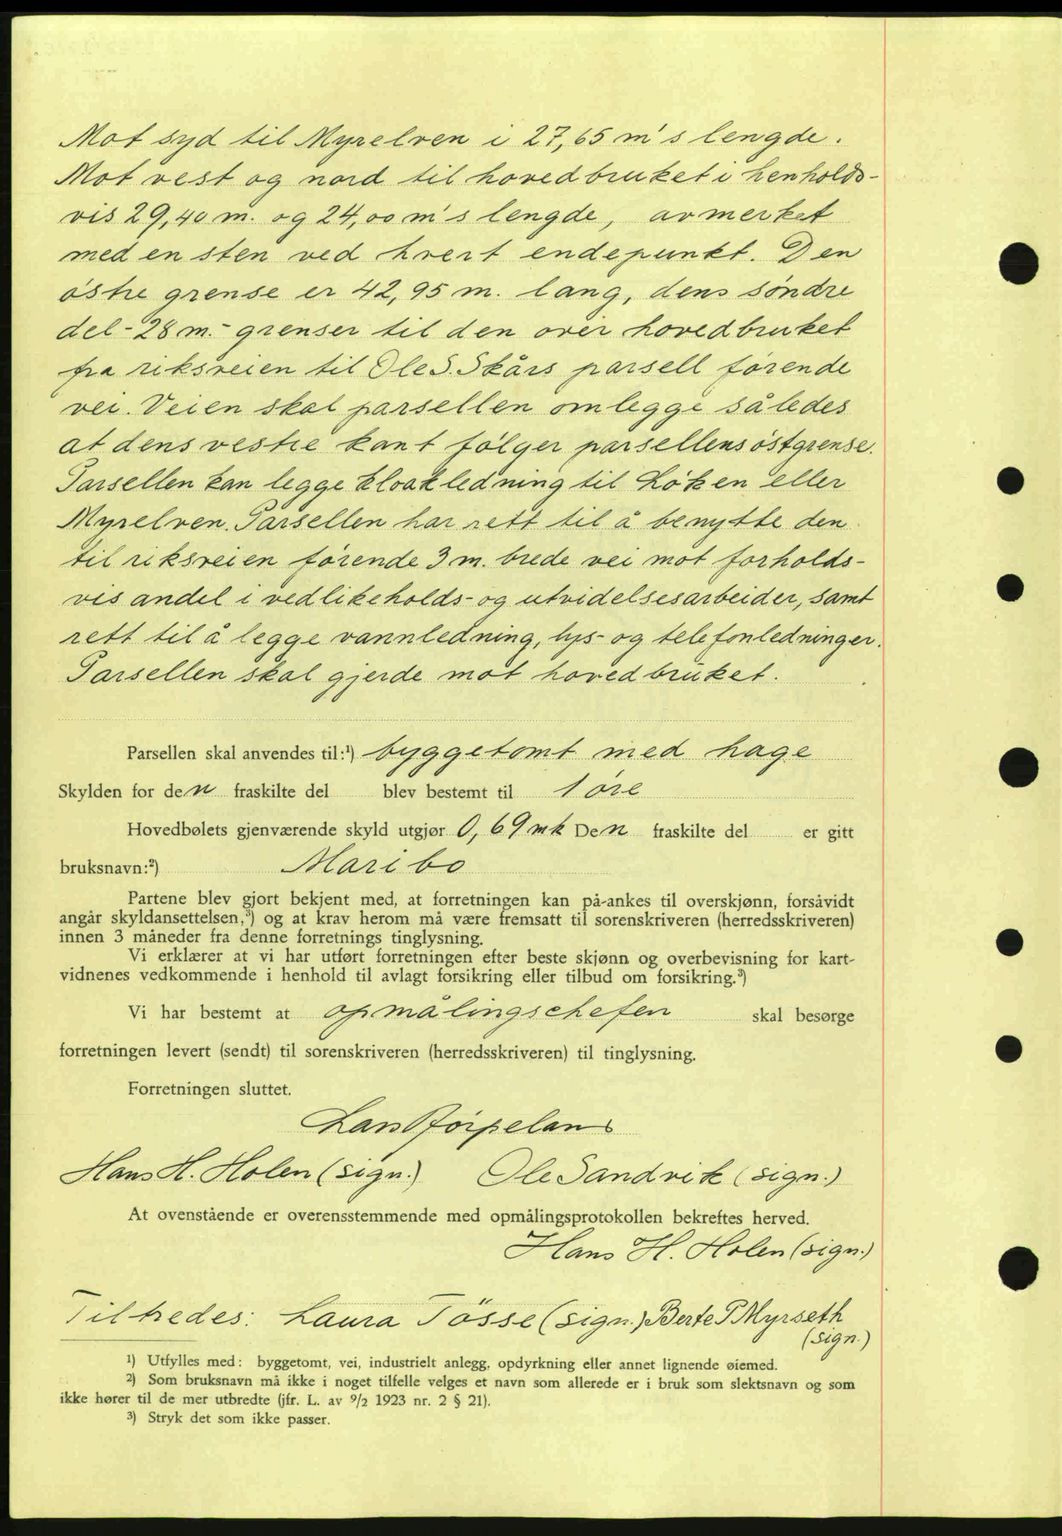 Mot syd til Myrelven i 27,65 m's lengde.
Mot vest og nord til hovedbruket i henholds-
vis 29,40 m. og 24,00 m's lengde, avmerket
med en sten ved hvert endepunkt. Den
østre grense er 42,95 m. lang, dens søndre
del - 28 m. - grenser til den over hovedbruket
fra riksveien til Ole S. Skårs parsell førende
vei. Veien skal parsellen omlegge således
at dens vestre kant følger parsellens østgrense.
Parsellen kan legge kloakledning til Løken eller
Myrelven. Parsellen har rett til å benytte den
til riksveien førende 3 m. brede vei mot forholds-
vis andel i vedlikeholds- og utvidelsesarbeider, samt
rett til å legge vannledning, lys- og telefonledninger.
Parsellen skal gjerde mot hovedbruket.
Parsellen skal anvendes til:¹) byggetomt med hage
Skylden for den fraskilte del blev bestemt til 1 øre
Hovedbølets gjenværende skyld utgjør 0,69 mk Den fraskilte del er gitt
bruksnavn:²) Maribo
Partene blev gjort bekjent med, at forretningen kan på-ankes til overskjønn, forsåvidt
angår skyldansettelsen,³) og at krav herom må være fremsatt til sorenskriveren (herredsskriveren)
innen 3 måneder fra denne forretnings tinglysning.
Vi erklærer at vi har utført forretningen efter beste skjønn og overbevisning for kart-
vidnenes vedkommende i henhold til avlagt forsikring eller tilbud om forsikring.³)
Vi har bestemt at opmålingschefen skal besørge
forretningen levert (sendt) til sorenskriveren (herredsskriveren) til tinglysning.
Forretningen sluttet.
Lars Jørpeland
Hans H. Holen (sign.) Ole Sandvik (sign.)
At ovenstående er overensstemmende med opmålingsprotokollen bekreftes herved.
Hans H. Holen (sign.)
Tiltredes: Laura Tøsse (sign.) Berte P Myrseth
(sign.)
¹) Utfylles med: byggetomt, vei, industrielt anlegg, opdyrkning eller annet lignende øiemed.
²) Som bruksnavn må ikke i noget tilfelle velges et navn som allerede er i bruk som slektsnavn og som
ikke hører til de mer utbredte (jfr. L. av 9/2 1923 nr. 2 § 21).
³) Stryk det som ikke passer.